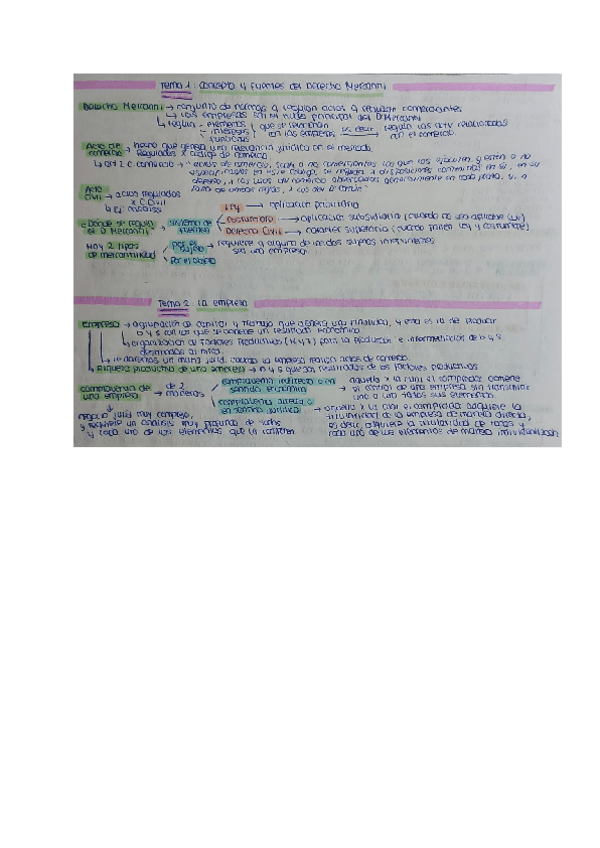 Tema 1: Concepto y Fuentes del Derecho Mercantil
Derecho Mercantil → conjunto de normas q regulan actos q realizan comerciantes
↳ Las empresas son el núcleo principal del D Mercantil
↳ regula - elementos
- intereses
que se relacionan con las empresas es decir regula las actv relacionadas con el comercio.
Acto de comercio → hecho que genera una relevancia jurídica en el mercado.
Regulados x código de comercio
↳ art 2 C. comercio → "actos de comercio, sean o no comerciantes los que los ejecuten, y estén o no
especificados en este código, se regirán x disposiciones contenidas en él, en su
defecto, x los usos del comercio observados generalmente en cada plaza, y, a
falta de ambas reglas, x las del D común"
Acto civil → actos regulados
x C. Civil
¿Dónde se regula el D Mercantil? sistema de fuentes
Ley → aplicación prioritaria
Costumbre → aplicación subsidiaria (cuando no sea aplicable ley)
Derecho Civil → carácter supletorio (cuando falten ley y costumbre)
Hay 2 tipos de mercantilidad
Por el sujeto → requiere q alguno de los dos sujetos intervinientes
sea una empresa
Por el objeto
Tema 2: La empresa
Empresa → agrupación de capital y trabajo que genera una finalidad, y esta es la de producir
b y s con los que se obtiene un resultado económico
↳ organización de factores productivos (K y T) para la producción e intermediación de b y s
destinados al mdo.
↳ le daremos un matiz juríd. cuando la empresa realiza actos de comercio.
Riqueza productiva de una empresa → b y s quedan resultados de los factores productivos
compraventa de una empresa → de 2 maneras
compraventa indirecta o en sentido económico → aquella x la cual el comprador obtiene
el control de una empresa sin transmitir
uno a uno todos sus elementos.
compraventa directa o en sentido jurídico → aquella x la cual el comprador adquiere la
titularidad de la empresa de manera directa,
es decir, adquiere la titularidad de todos y
cada uno de los elementos de manera individualizada
negocio juríd muy complejo,
y requiere un análisis muy profundo de todos
y cada uno de los elementos que la conforman.